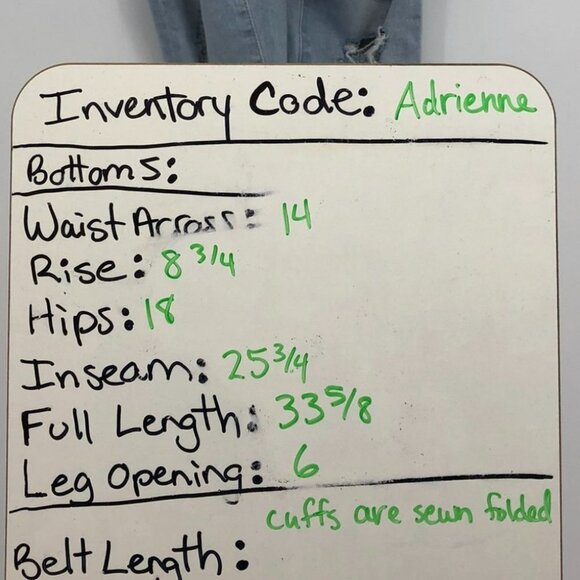 Inventory Code: Adrienne
Bottoms:
Waist Across: 14
Rise: 8 3/4
Hips: 18
Inseam: 25 3/4
Full Length: 33 5/8
Leg Opening: 6
cuffs are sewn folded
Belt Length: